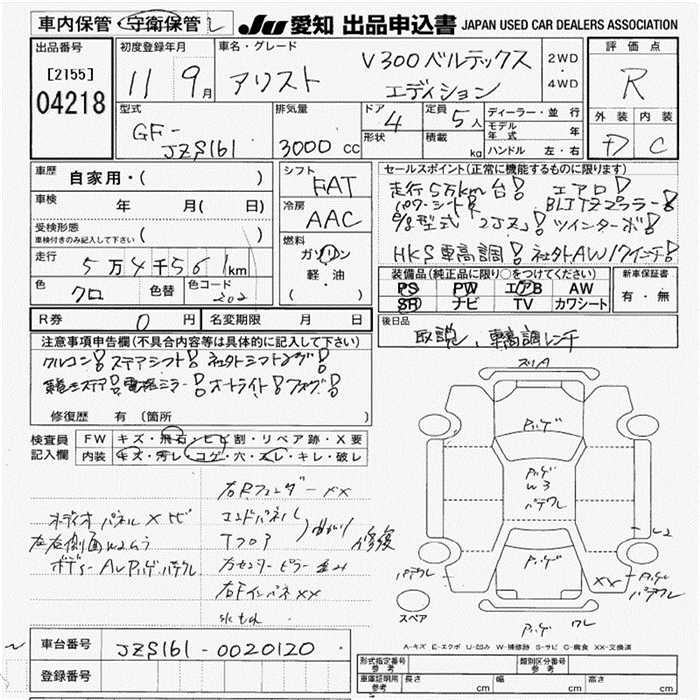 車内保管・守衛保管
JU 愛知 出品申込書 JAPAN USED CAR DEALERS ASSOCIATION
出品番号
[2155]
04218
初度登録年月
11 9月
車名・グレード
アリスト
V300 ベルテックス
エディション
2WD
・
4WD
評価点
R
外装 内装
D C
型式
GF-
JZS161
排気量
3000 cc
ドア 4
形状
定員 5人
積載 kg
ディーラー・並行
モデル年式 年
ハンドル 左・右
車歴
自家用・( )
車検 年 月( 日)
受検形態
車検付きのみ記入して下さい
( )
走行
5万4千561km
色
クロ
色替
色コード
202
シフト
FAT
冷房
AAC
燃料
ガソリン
軽・油
( )
セールスポイント(正常に機能するものに限ります)
走行5万km台! エアロ!
パワーシート!
型式 2JZ! ツインターボ!
HKS車高調! 社外AW17インチ!
装備品(純正品に限り○をつけてください)
PS PW エアB AW
SR ナビ TV カワシート
新車保証書
有・無
R券 0 円
名変期限 月 日
後日品
取説、車高調レンチ
注意事項申告欄(不具合内容等は具体的に記入して下さい)
クルコン! ステアシフト! 社外シフトノブ!
電格ミラー! オートライト! フォグ!
修復歴 有(箇所 )
検査員
記入欄
FW キズ・飛石・ヒビ割・リペア跡・X要
内装 キズ・汚レ・コゲ・穴・スレ・キレ・破レ
オーディオパネルX ビ
左右側面
ボディー
右Rフェンダー XX
エンドパネル
Tフロア
曲がり
修復
右センターピラー
右Fインパネ XX
スリA
W3
XX
ワレ
スペア
A-キズ E-エクボ U-凹み W-補修跡 S-サビ C-腐食 XX-交換済
車台番号
JZS161-0020120
登録番号
形式指定番号
参考
類別区分番号
参考
車庫証明用
参考
長さ cm 幅 cm 高さ cm